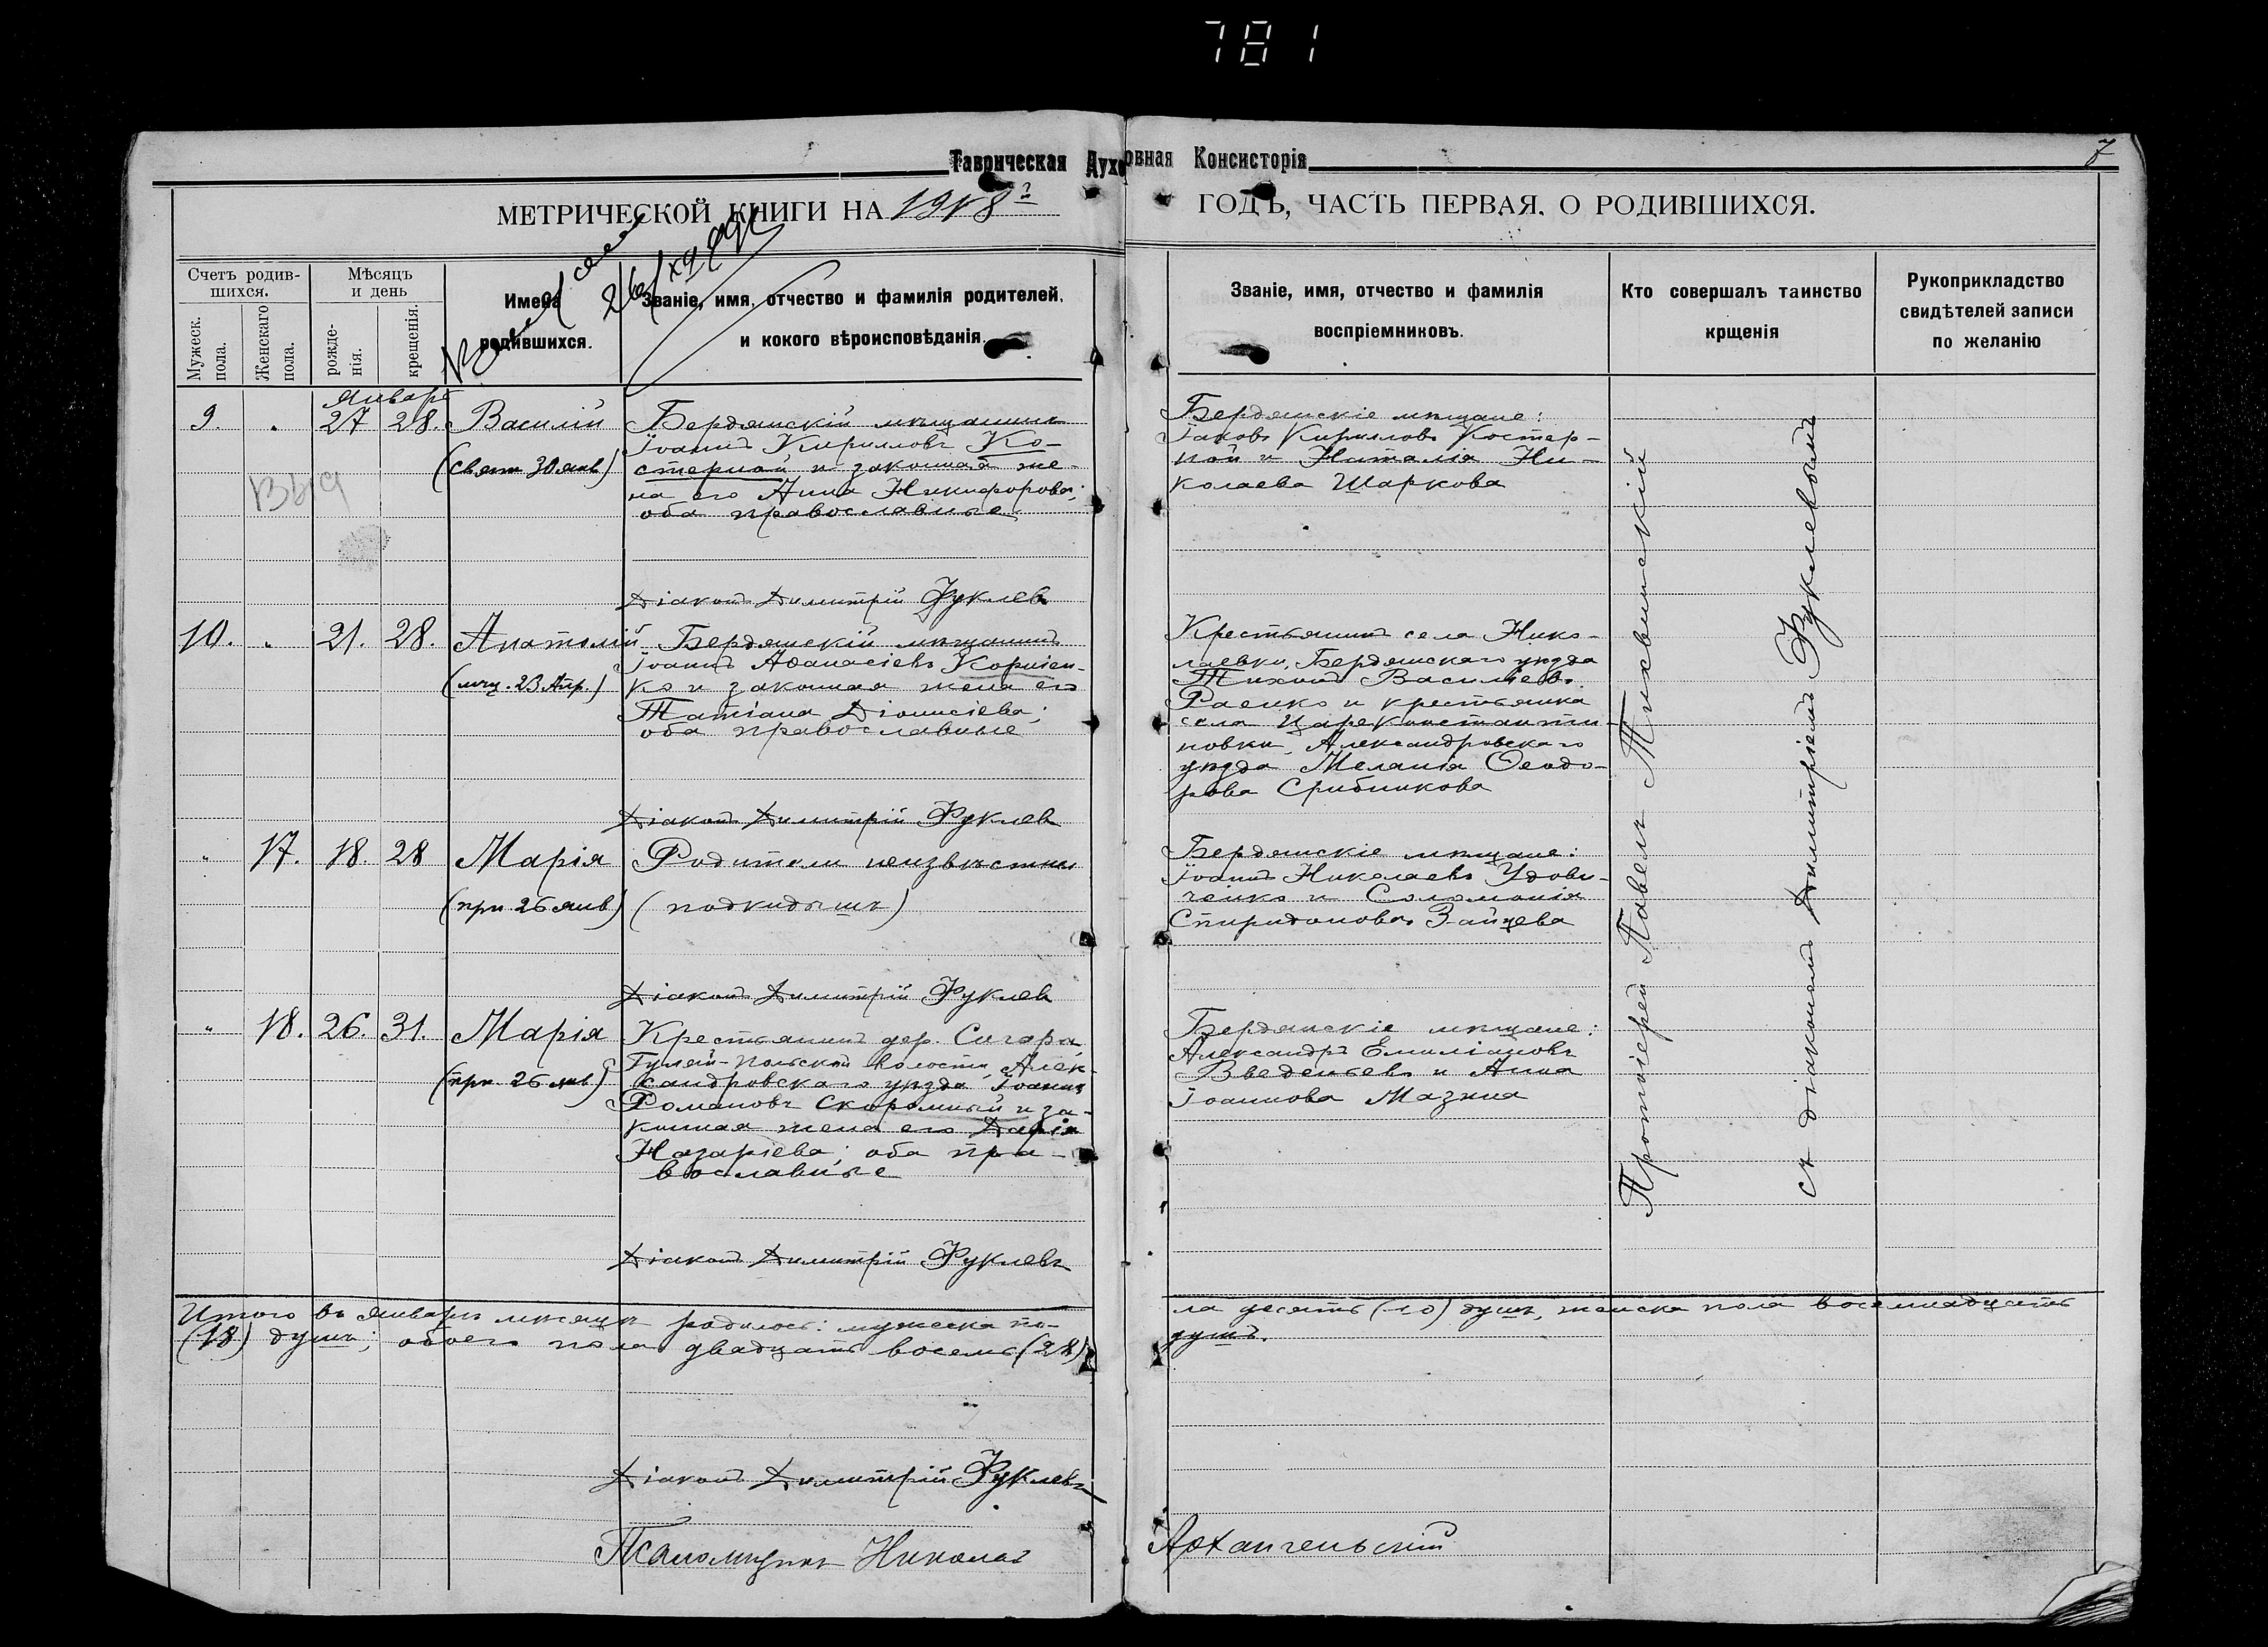 781
Таврическая Духовная Консисторія
7
МЕТРИЧЕСКОЙ КНИГИ НА 1918 г
ГОДЪ, ЧАСТЬ ПЕРВАЯ. О РОДИВШИХСЯ.
Счетъ родив-
шихся.
Мужеск.
пола.
Женскаго
пола.
Мѣсяцъ
и день
рожде-
нія.
крещенія.
Имена
родившихся.
Званіе, имя, отчество и фамилія родителей,
и кокого вѣроисповѣданія.
Званіе, имя, отчество и фамилія
воспріемниковъ.
Кто совершалъ таинство
крщенія
Рукоприкладство
свидѣтелей записи
по желанію
Январь
9. 27 28. Василій
(свят 30 янв)
Бердянскій мѣщанинъ
Іоаннъ Кирилловъ Ко-
стерной и законная же-
на его Анна Никифорова;
оба православные
Діаконъ Димитрій Руклевъ
Бердянскіе мѣщане:
Іаковъ Кирилловъ Костер-
ной и Наталія Ни-
колаева Шаркова
10. 21. 28. Анатолій
(мчц. 23 Апр.)
Бердянскій мѣщанинъ
Іоаннъ Аѳанасіевъ Корніен-
ко и законная жена его
Татіана Діонисіева;
оба православные
Діаконъ Димитрій Руклевъ
Крестьянинъ села Нико-
лаевки, Бердянскаго уѣзда
Тихонъ Василіевъ
Раенко и крестьянка
села Цареконстанти-
новки, Александровскаго
уѣзда Меланія Ѳеодо-
рова Срибникова
17. 18. 28 Марія
(прп 26 янв)
Родители неизвѣстны
(подкидышъ)
Діаконъ Димитрій Руклевъ
Бердянскіе мѣщане:
Іоаннъ Николаевъ Удови-
ченко и Соломонія
Спиридонова Зайцева
18. 26. 31. Марія
(прп 26 янв)
Крестьянинъ дер. Сигора,
Гуляй-Польской волости, Алек-
сандровскаго уѣзда Іоаннъ
Романовъ Скоромный и за-
конная жена его Дарія
Назаріева; оба пра-
вославные
Діаконъ Димитрій Руклевъ
Бердянскіе мѣщане:
Александръ Емиліановъ
Введенсевъ и Анна
Іоаннова Мазина
Протоіерей Павелъ Тихвинскій
съ діакономъ Димитріемъ Руклевымъ
Итого въ Январѣ мѣсяцѣ родилось: мужеска по-
ла десять (10) душъ, женска пола восемнадцать
(18) душъ; обоего пола двадцать восемь (28)
душъ.
Діаконъ Димитрій Руклевъ
Псаломщикъ Николай
Архангельскій